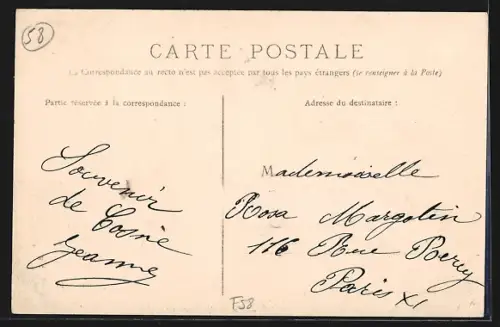 58
CARTE POSTALE
La Correspondance au recto n'est pas acceptée par tous les pays étrangers (se renseigner à la Poste)
Partie réservée à la correspondance :
Adresse du destinataire :
Souvenir
de Cosne
Jeanne
Mademoiselle
Rosa Margotin
116 Rue Bercy
Paris XI
F58